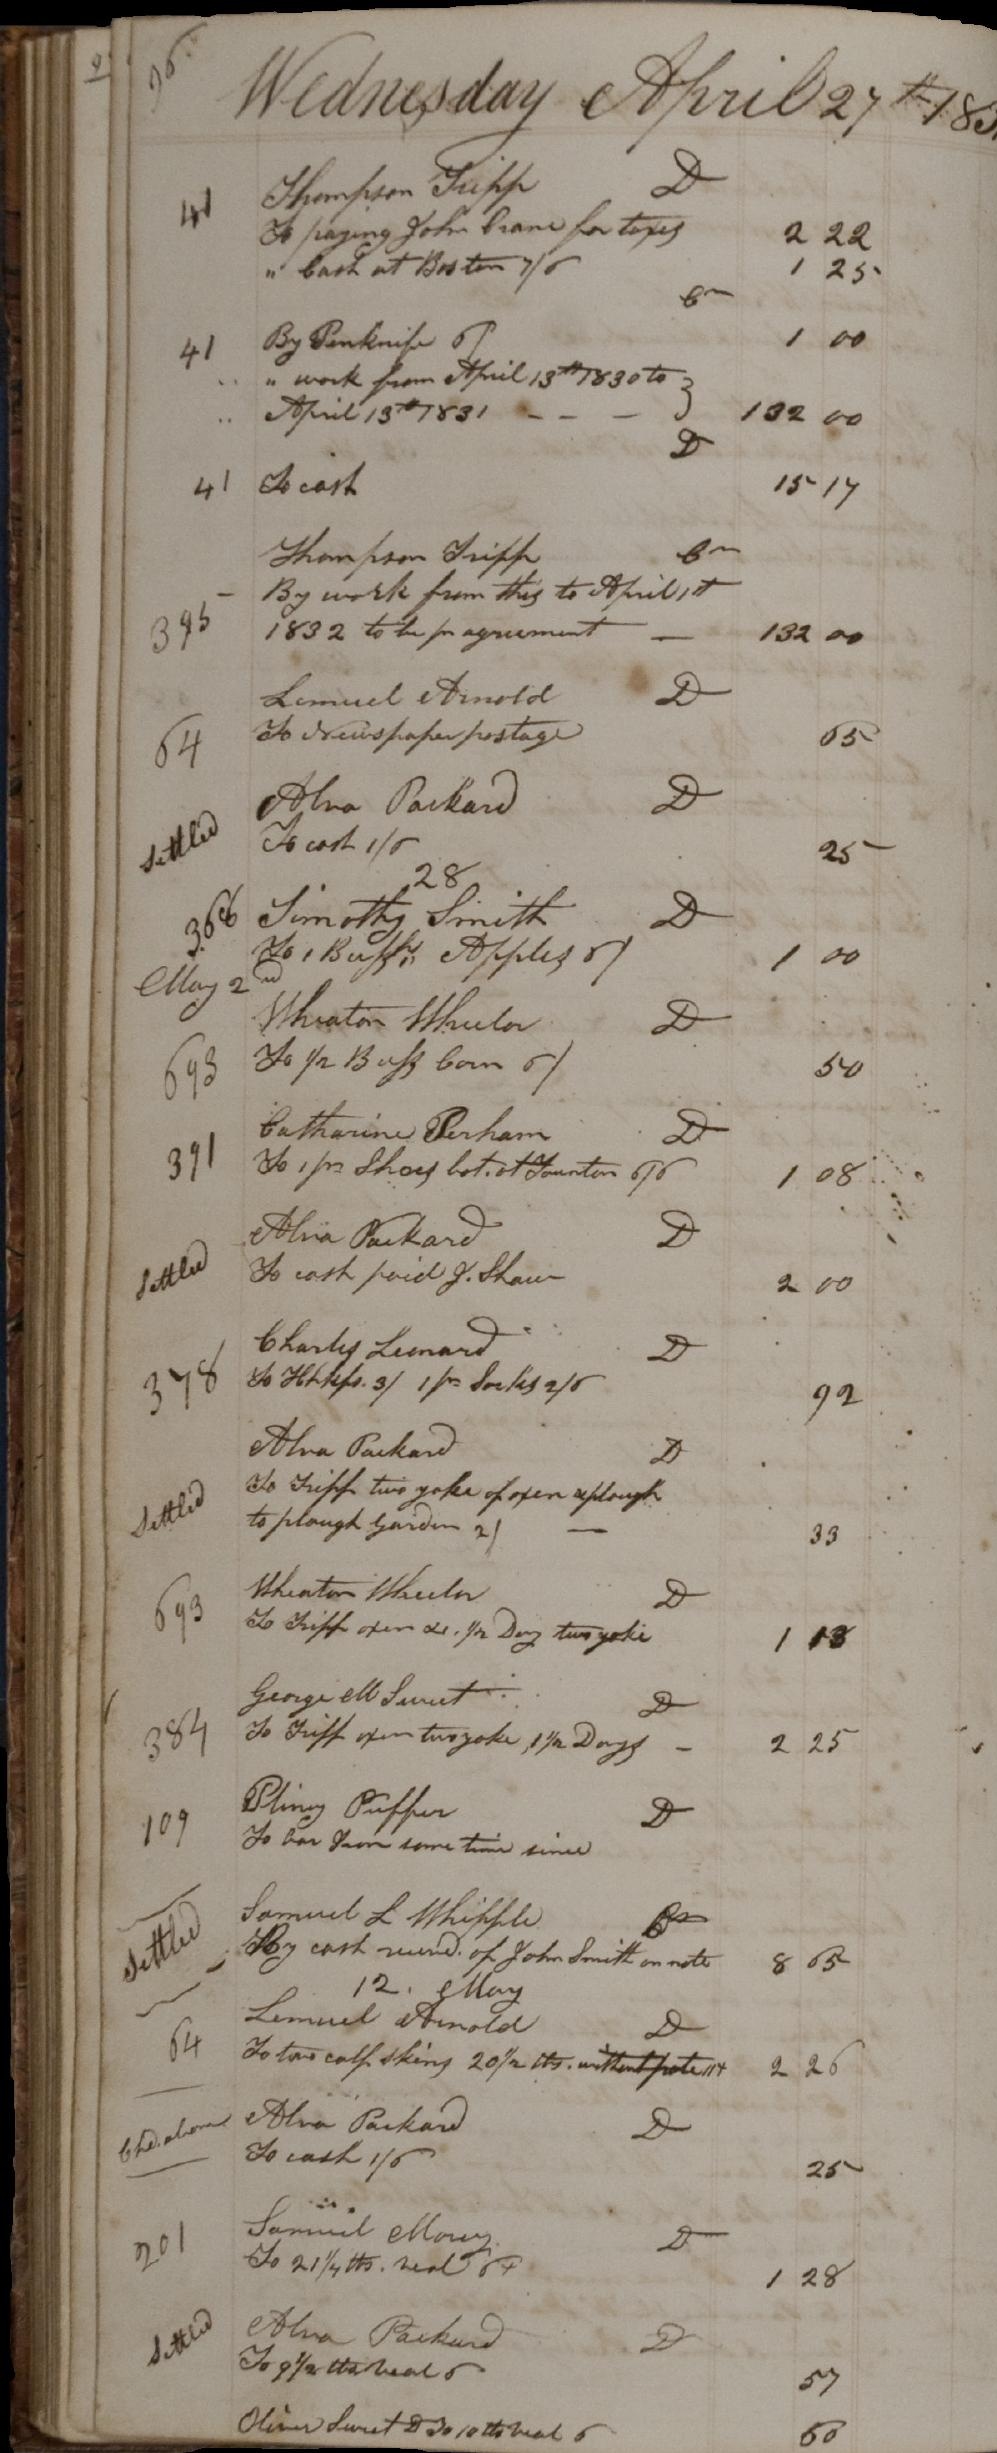 96
Wednesday April 27th 183
41 Thompson Tripp D
To paying John Crane for taxes 2 22
" Cash at Boston 7/6 1 25
Cr
41 By Penknife 6/ 1 00
" work from April 13th 1830 to
April 13th 1831 - - - 132 00
D
41 To cash 15 17
Thompson Tripp Cr
By work from this to April 1st
395 1832 to be pr agreement — 132 00
Lemuel Arnold D
64 To Newspaper postage 65
Alva Packard D
Settled To cash 1/6 25
28
366 Timothy Smith D
To 1 Bush. Apples 6/ 1 00
May 2nd
Wheaton Wheelor D
693 To 1/2 Bush Corn 6/ 50
Catharine Perham D
391 To 1 pr Shoes bot. at Taunton 6/6 1 08
Alva Packard D
Settled To cash paid J. Shaw 2 00
Charles Leonard D
378 To Hhkfs. 3/ 1 pr Socks 2/6 92
Alva Packard D
Settled To Tripp two yoke of oxen & plough
to plough Garden 2/ — 33
Wheaton Wheelor D
693 To Tripp oxen &c. 1/2 Day two yoke 1 13
George M Sweet D
384 To Tripp oxen two yoke 1 1/2 Days - 2 25
Pliny Puffer D
109 To bar Iron some time since
Samuel L Whipple Cr
Settled By cash receivd. of John Smith on note 8 65
12. May
Lemuel Arnold D
64 To two calf skins 20 1/2 lbs. without pate 11 2 26
Chd. above Alva Packard D
To cash 1/6 25
Samuel Morey D
201 To 21 1/4 lbs. veal 6 1 28
Settled Alva Packard D
To 9 1/2 lbs veal 6 57
Oliver Sweet D To 10 lbs veal 6 60